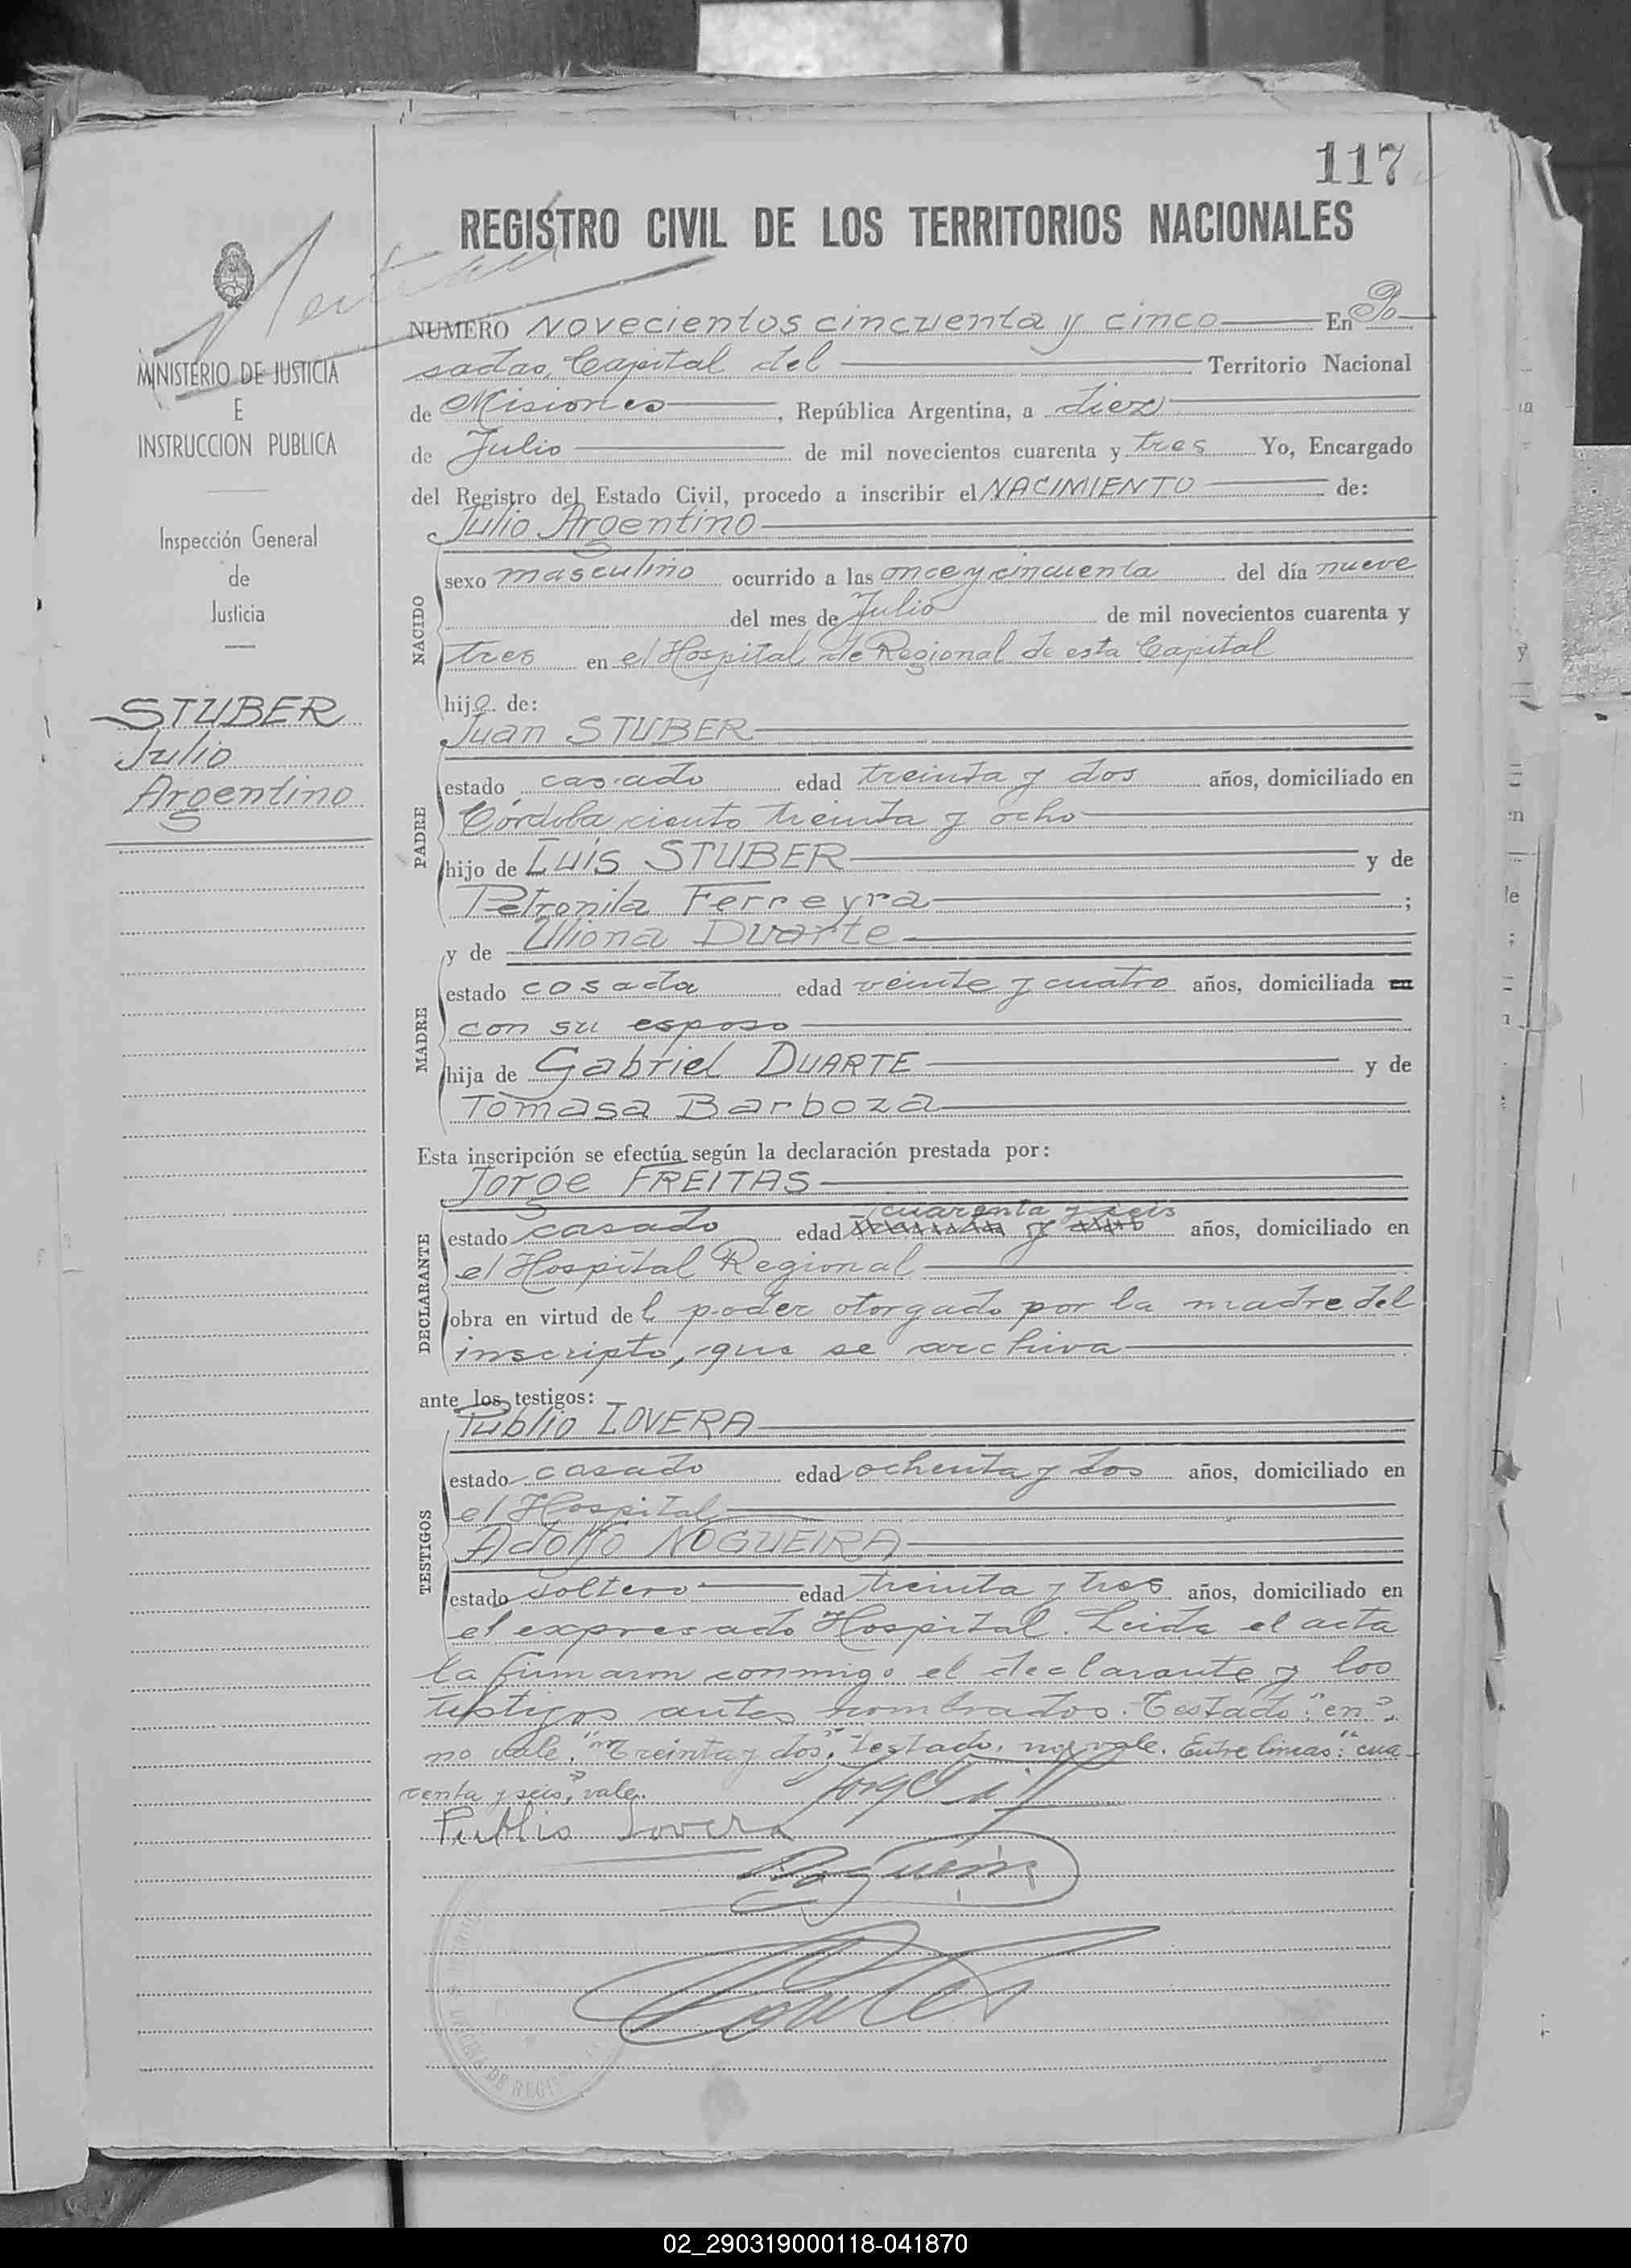 117
REGISTRO CIVIL DE LOS TERRITORIOS NACIONALES
MINISTERIO DE JUSTICIA
E
INSTRUCCION PUBLICA
Inspección General
de
Justicia
STUBER
Julio
Argentino
NUMERO Novecientos cincuenta y cinco En Po
sadas, Capital del Territorio Nacional
de Misiones, República Argentina, a diez
de Julio de mil novecientos cuarenta y tres Yo, Encargado
del Registro del Estado Civil, procedo a inscribir el NACIMIENTO de:
Julio Argentino
NACIDO
sexo masculino ocurrido a las once y cincuenta del día nueve
del mes de Julio de mil novecientos cuarenta y
tres en el Hospital de Regional de esta Capital
hijo de:
Juan STUBER
PADRE
estado casado edad treinta y dos años, domiciliado en
Córdoba ciento treinta y ocho
hijo de Luis STUBER y de
Petronila Ferreyra;
y de Uliona Duarte
MADRE
estado cosada edad veinte y cuatro años, domiciliada en
con su esposo
hija de Gabriel DUARTE y de
Tomasa Barboza
Esta inscripción se efectúa según la declaración prestada por:
Jorge FREITAS
DECLARANTE
cuarenta y seis
estado casado edad y años, domiciliado en
el Hospital Regional
obra en virtud del poder otorgado por la madre del
inscripto, que se archiva
ante los testigos:
Publio LOVERA
TESTIGOS
estado casado edad ochenta y dos años, domiciliado en
el Hospital
Adolfo NOGUEIRA
estado soltero edad treinta y tres años, domiciliado en
el expresado Hospital. Leida el acta
la firmaron conmigo el declarante y los
testigos antes nombrados. Testado: "en",
no vale. "Treinta y dos", testado, no vale. Entre lineas: "cua
renta y seis", vale.
Jorge
Publio Lovera
Nogueira
DE REGIS
02_290319000118-041870